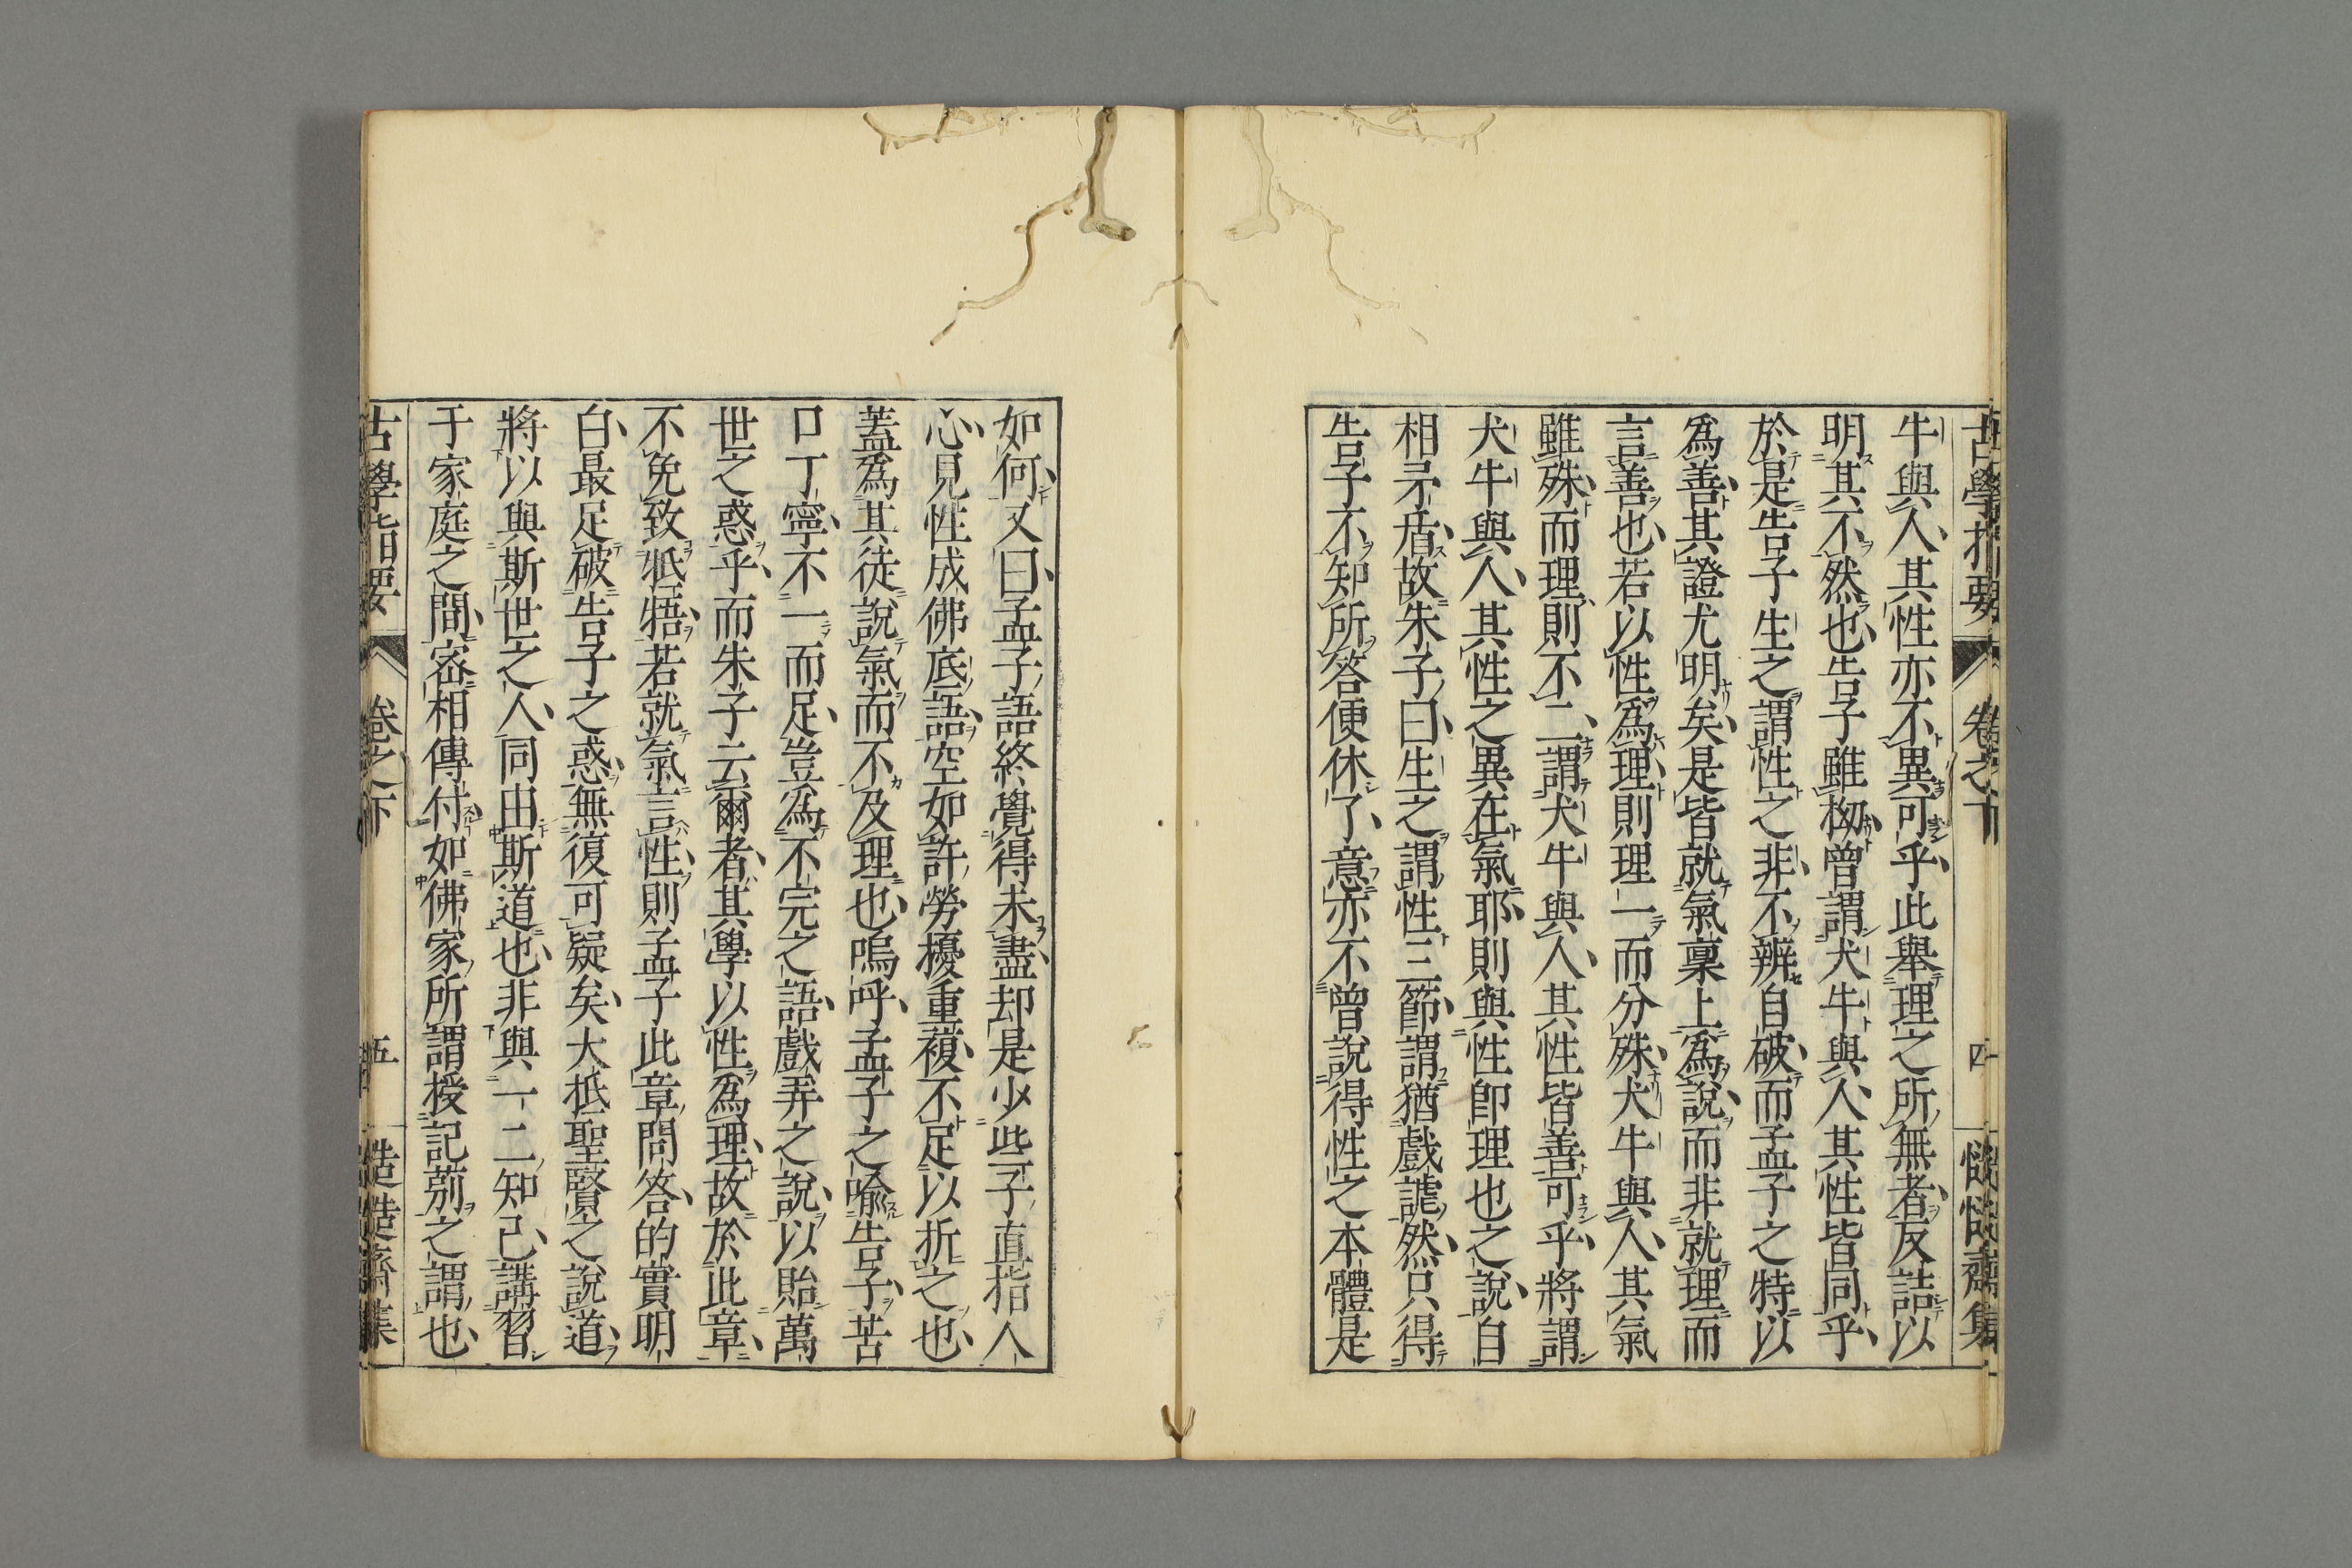 古學指要 卷之下 四 慥慥齋集
牛與人其性亦不異可乎此舉理之所無者反詰以
明其不然也告子雖拗曾謂犬牛與人其性皆同乎
於是告子生之謂性之非不辨自破而孟子之特以
爲善其證尤明矣是皆就氣稟上爲說而非就理而
言善也若以性爲理則理一而分殊犬牛與人其氣
雖殊而理則不二謂犬牛與人其性皆善可乎將謂
犬牛與人其性之異在氣耶則與性卽理也之說自
相矛盾故朱子曰生之謂性三節謂猶戲謔然只得
告子不知所答便休了意亦不曾說得性之本體是
如何又曰孟子語終覺得未盡却是少些子直指人
心見性成佛底語空如許勞擾重複不足以折之也
蓋爲其徒說氣而不及理也嗚呼孟子之喩告子苦
口丁寧不一而足豈爲不完之語戲弄之說以貽萬
世之惑乎而朱子云爾者其學以性爲理故於此章
不免致牴牾若就氣言性則孟子此章問答的實明
白最足破告子之惑無復可疑矣大抵聖賢之說道
將以與斯世之人同由斯道也非與一二知己講習
于家庭之間密相傳付如佛家所謂授記莂之謂也
古學指要 卷之下 五 慥慥齋集